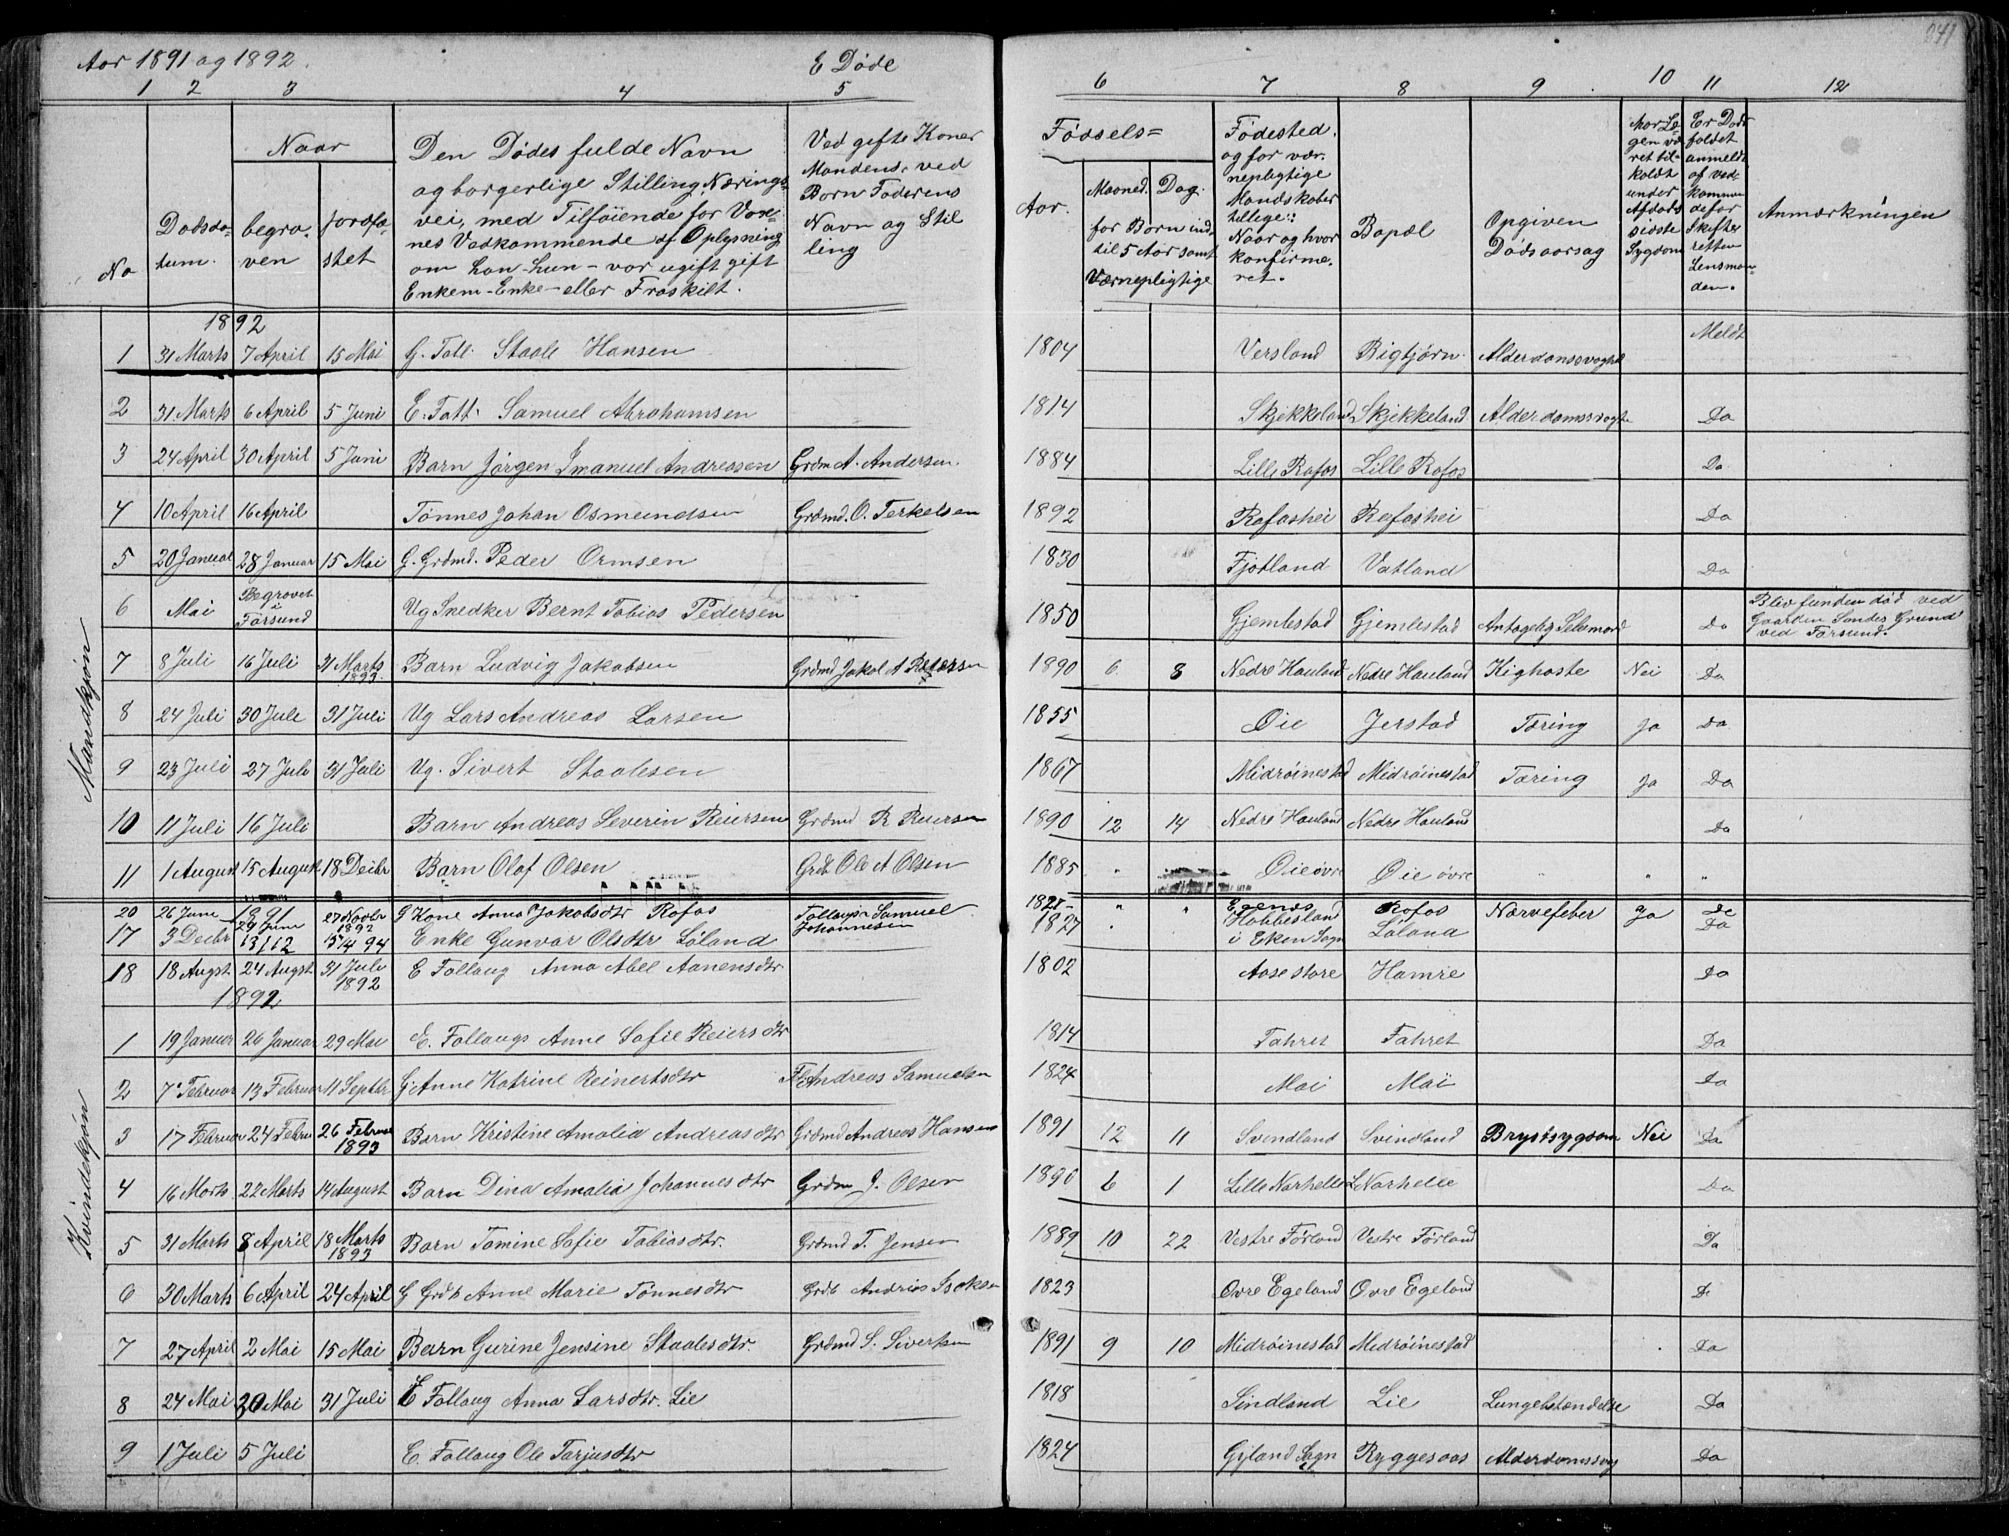 Aar 1891 og 1892. E Døde 241
1 2 3 4 5 6 7 8 9 10 11 12
No
Dødsda-
tum.
Naar
begra-
ven
jordfæ-
stet
Den Dødes fulde Navn
og borgerlige Stilling, Nærings-
vei, med Tilføiende for Vox-
nes Vedkommende af Oplysning
om han-hun-var ugift gift
Enkem-Enke-eller Fraskilt.
Ved gifte Koner
Mandens, ved
Børn Faderens
Navn og Stil
ling
Fødsels=
Aar.
Maaned. Dag.
for Børn ind-
til 5 Aar samt
Værnepligtige
Fødested.
og for vær-
nepligtige
Mandskaber
tillege:
Naar og hvor
konfirme-
ret.
Bopæl
Opgiven
Dødsaarsag
Har Læ-
gen væ-
ret til-
kaldt
under
Afdødes
sidste
Sygdom
Er Døds
faldet
anmeldt
af ved-
kommen
de for
Skifte
retten
Lensman-
den.
Anmærkningen
Mandkjøn
1892
1 31 Marts 7 April 15 Mai G. Fatt. Staale Hansen 1804 Versland Bigtjørn Alderdomssvaght Meldt
2 31 Marts 6 April 5 Juni E. Fatt. Samuel Abrahamsen 1814 Skjekkeland Skjekkeland Alderdomssvagt Da
3 24 April 30 April 5 Juni Barn Jørgen Emanuel Andreasen Grdm A. Andersen. 1884 Lille Rafos Lille Rafos Da
4 10 April 16 April Tønnes Johan Osmundsen Grdmd. O. Terkelsen 1892 Rafoshei Rafoshei Da
5 20 Januar 28 Januar 15 Mai G. Grdmd. Peder Ormsen 1830 Fjotland Vatland Da
6 Mai Begravet i Farsund Ug Snedker Bernt Tobias Pedersen 1850 Gjemlestad Gjemlestad Antagelig Selvmord Da Blev funden død ved
Gaarden Sondes Grund
ved Farsund.
7 8 Juli 16 Juli 31 Marts 1893 Barn Ludvig Jakobsen Grdmd Jakob A Petersen 1890 6 8 Nedre Hauland Nedre Hauland Kighoste Nei Da
8 24 Juli 30 Jule 31 Juli Ug Lars Andreas Larsen 1855 Øie Jerstad Tæring Ja Da
9 23 Juli 27 Jule 31 Juli Ug. Sivert Staalesen 1867 Midrøinestad Midrøinestad Tæring Ja Da
10 11 Juli 16 Juli Barn Andreas Severin Reiersen Grdmd R Reiersen 1890 12 14 Nedre Hauland Nedre Hauland Da
11 1 August 15 August 18 Decbr Barn Olaf Olsen Grdb Ole A Olsen 1885 " Øie øvre Øie øvre " " "
Kvindekjøn
20 26 June 1891 29 June 27 Novbr 1892 G Kone Anna Jakobsdtr Rafos Fattangs Samuel Johannesen 1828 " " Egenes Rafos Nervefeber Ja Da
17 3 Decbr 13/12 15/4 94 Enke Gunvor Olsdtr Løland 1827 Hobbesland i Eken Sogn Løland Da
18 18 Augst 24 Augst 31 Juli 1892 E Fattang Anna Abel Aanensdtr 1802 Aase store Hamre Da
1892
1 19 Januar 26 Januar 29 Mai E. Fattangs Anne Sofie Reiersdtr 1814 Fahret Fahret Da
2 7 Februar 13 Februar 11 Septbr G. Anne Katrine Reinertsdtr F. Andreas Samuelsen 1824 Moi Moi Da
3 17 Februar 24 Febru 26 Februar 1893 Barn Kristine Amalia Andreasdtr Grdmd Andreas Hansen 1891 12 11 Svindland Svindland Brystsygdom Nei Da
4 16 Marts 22 Marts 14 August Barn Dina Amalia Johannesdtr Grdm J. Olsen 1890 6 1 Lille Narhelle L Narhelle Da
5 31 Marts 8 April 18 Marts 1893 Barn Tomine Sofie Tobiasdtr. Grdmd T. Jensen 1889 10 22 Vestre Førland Vestre Førland Da
6 30 Marts 6 April 24 April G Grdb Anne Marie Tønnesdtr Grdb Andrias Isaksen 1823 Øvre Egeland Øvre Egeland D
7 27 April 2 Mai 15 Mai Barn Gurine Jensine Staalesdtr. Grdmd S. Sivertsen 1891 9 10 Midrøinestad Midrøinestad Da
8 24 Mai 30 Mai 31 Juli E Fattang Anna Larsdtr. Lie 1818 Sindland Lie Lungebetændelse Da
9 1 Juli 5 Juli E. Fattang Ole Tarjusdtr 1824 Gyland Sogn Ryggesaas Alderdomssvag Da